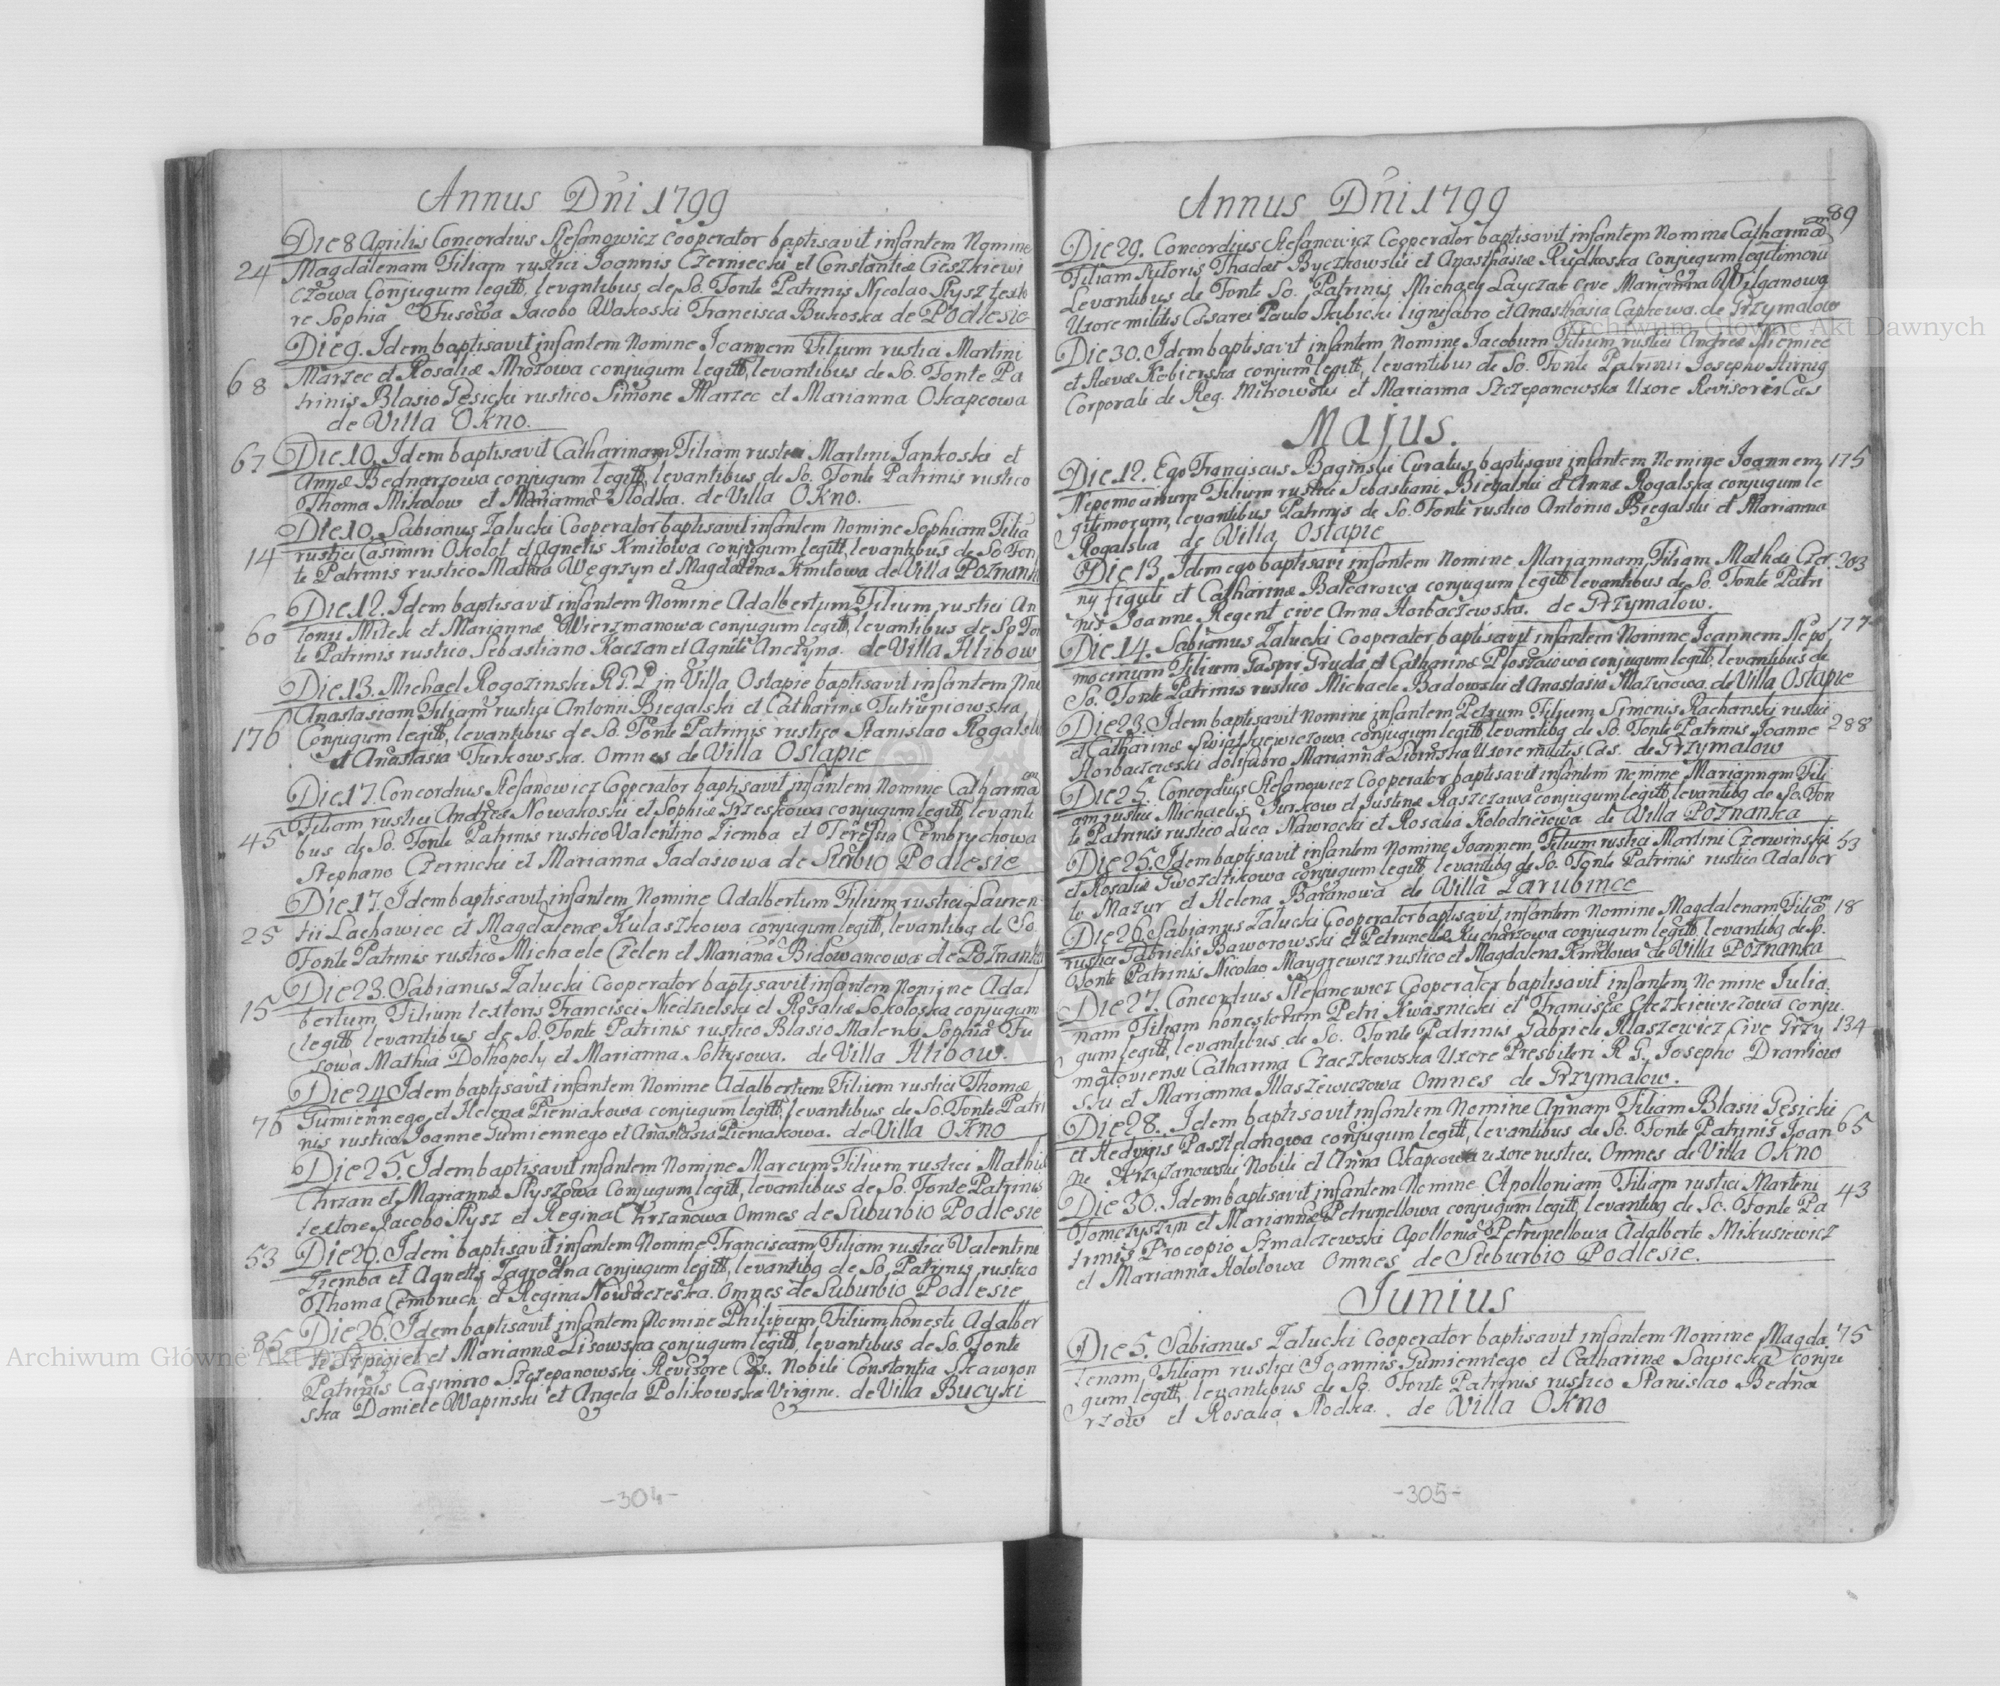 Annus Dñi 1799
Die 8 Aprilis Concordius Stefanowicz Cooperator baptisavit infantem Nomine
24 Magdalenam Filiam rustici Joannis Czerniecki et Constantiæ Cieszkiewi
czowa Conjugum legitt, levantibus de So. Fonte Patrinis Nicolao Stysz texto
re Sophia Fusowa Jacobo Wakoski Francisca Bukoska de Podlesie
Die 9. Idem baptisavit infantem Nomine Joannem Filium rustici Martini
68 Marzec et Rosaliæ Mrozowa conjugum legitt, levantibus de So. Fonte Pa
trinis Blasio Gesicki rustico Simone Marzec et Marianna Okapcowa
de Villa Okno.
67 Die 10. Idem baptisavit Catharinam Filiam rustici Martini Jankoski et
Annæ Bednarzowa conjugum legitt, levantibus de So. Fonte Patrinis rustico
Thoma Mikolow et Marianna Slodka. de Villa Okno.
Die 10. Sabianus Zalucki Cooperator baptisavit infantem Nomine Sophiam Filia
14 rustici Casimiri Okolot et Agnetis Kmitowa conjugum legitt, levantibus de So Fon
te Patrinis rustico Mathia Wegrzyn et Magdalena Kmitowa de Villa Poznank
Die 12. Idem baptisavit infantem Nomine Adalbertum Filium rustici An
60 tonii Milek et Mariannæ Wierzmanowa conjugum legitt, levantibus de So Fon
te Patrinis rustico Sebastiano Kaczan et Agnite Anczyna. de Villa Hlibow
Die 13. Michael Rogozinski R.G.P in Villa Ostapie baptisavit infantem Nne
Anastasiam Filiam rustici Antonii Biegalski et Catharinæ Sutrupiowska
176 Conjugum legitt, levantibus de So. Fonte Patrinis rustico Stanislao Rogalsk
et Anastasia Turkowska. Omnes de Villa Ostapie
Die 17. Concordius Stefanowicz Cooperator baptisavit infantem Nomine Catharina
Filiam rustici Andreæ Nowakoski et Sophiæ Grzeskowa conjugum legitt, levanti
45 bus de So. Fonte Patrinis rustico Valentino Ziemba et Teressia Cembrychowa
Stephano Czernicki et Marianna Jadasiowa de Surbio Podlesie
Die 17. Idem baptisavit infantem Nomine Adalbertum Filium rustici Lauren
25 tii Lachawiec et Magdalenæ Kulaszkowa conjugum legitt, levantibg de So
Fonte Patrinis rustico Michaele Czelen et Mariana Bidowancowa de Poznank
Die 23. Sabianus Zalucki Cooperator baptisavit infantem Nomine Adal
15 bertum Filium textoris Francisci Niedzielski et Rosaliæ Sokoloska conjugum
legitt levantibus de So. Fonte Patrinis rustico Blasio Malenki Sophia Fu
sowa Mathia Dolhopoly et Marianna Soltysowa. de Villa Hlibow.
Die 24 Idem baptisavit infantem Nomine Adalbertum Filium rustici Thomæ
76 Gumiennego et Helenæ Pieniakowa conjugum legitt, levantibus de So. Fonte Patri
nis rustico Joanne Gumiennego et Anastasia Pieniakowa. de Villa Okno
Die 25. Idem baptisavit infantem Nomine Marcum Filium rustici Mathi
Chrzan et Mariannæ Styszowa Conjugum legitt, levantibus de So. Fonte Patrinis
textore Jacobo Stysz et Regina Chrzanowa Omnes de Suburbio Podlesie
53 Die 26. Idem baptisavit infantem Nomine Franciscam Filiam rustici Valentini
Ziemba et Agnetis Zagrodna conjugum legitt, levantibg de So. Patrinis rustico
Thoma Cembruch et Regina Nowaczeska. Omnes de Suburbio Podlesie
85 Die 26. Idem baptisavit infantem Nomine Philipum Filium honesti Adalber
ti Szpigiel et Mariannæ Lisowska conjugum legitt, levantibus de So. Fonte
Patrinis Casimiro Szczepanowski Revisore Cæs. Nobili Constantia Skawron
ska Daniele Wapinski et Angela Polikowska Virgine. de Villa Bucyki
-304-
Annus Dñi 1799
89
Die 29. Concordius Stefanowicz Cooperator baptisavit infantem Nomine Catharinã
Filiam Sutoris Thadæi Byczkowski et Anasthasiæ Rudkoska conjugum legitimorũ
Levantibus de Fonte So. Patrinis Michaele Layczak Cive Marianna Wilganowa
Uxore militis Cæsarei Paulo Skibicki lignifabro et Anasthasia Capkowa de Grzymalow
Die 30. Idem baptisavit infantem Nomine Jacobum Filium rustici Andreæ Niemiec
et Havæ Kobierska conjum legitt, levantibus de So. Fonte Patrinis Josepho Hirnig
Corporali de Reg. Mitrowski et Marianna Szczepanowska Uxore Revisoris Cæs
Majus.
Die 12. Ego Franciscus Baginski Curatus baptisavi infantem Nomine Joannem 175
Nepomoanum Filium rustici Sebastiani Biegalski et Annæ Rogalska conjugum le
gitimorum, levantibus Patrinis de So. Fonte rustico Antonio Biegalski et Marianna
Rogalska de Villa Ostapie
Die 13. Idem ego baptisavi infantem Nomine Mariannam Filiam Mathæi Czer 203
ny figuli et Catharinæ Balcarowa conjugum legitt levantibus de So. Fonte Patri
nis Joanne Regent cive Anna Horbaczewska. de Grzymalow.
Die 14. Sabianus Zalucki Cooperator baptisavit infantem Nomine Joannem Nepo 177
mocinum Filium Gaspri Gruda et Catharinæ Ploszaiowa conjugum legitt, levantibus de
So. Fonte Patrinis rustico Michaele Badowski et Anastasia Mazurowa. de Villa Ostapie
Die 23. Idem baptisavit Nomine infantem Petrum Filium Simonis Rachanski rustici
et Catharinæ Swiatkiewiczowa conjugum legitt levantibg de So. Fonte Patrinis Joanne 288
Horbaczewski dolifabro Marianna Libinska Uxore militis Cæs. de Grzymalow
Die 25. Concordius Stefanowicz Cooperator baptisavit infantem Nomine Mariannam Fili
am rustici Michaelis Jurkow et Justinæ Raszczawa conjugum legitt, levantibg de So. Fon
te Patrinis rustico Luca Nawrocki et Rosalia Kolodzieiowa de Villa Poznanka
Die 25. Idem baptisavit infantem Nomine Joannem Filium rustici Martini Czerwinski 53
et Rosaliæ Gwozdzikowa conjugum legitt levantibg de So. Fonte Patrinis rustico Adalber
to Mazur et Helena Baranowa de Villa Zarubince
Die 26. Sabianus Zalucki Cooperator baptisavit infantem Nomine Magdalenam Filiã 18
rustici Gabrielis Baworowski et Petrunellæ Kucharzowa conjugum legitt, levantibg de So.
Fonte Patrinis Nicolao Maygrewicz rustico et Magdalena Kmitowa de Villa Poznanka
Die 27. Concordius Stefanowicz Cooperator baptisavit infantem Nomine Julia
nam Filiam honestorum Petri Kwasnicki et Franciscæ Cieszkiewiczowa conju.
gum legitt, levantibus de So. Fonte Patrinis Gabriele Ilaszewicz Cive Grzy 134
maloviensi Catharina Czaczkowska Uxore Presbiteri R.G. Josepho Draniow
ski et Marianna Ilaszewiczowa Omnes de Grzymalow.
Die 28. Idem baptisavit infantem Nomine Annam Filiam Blasii Gesicki
et Hedvigis Pasztelanowa conjugum legitt, levantibus de So. Fonte Patrinis Joan 65
ne Krzyzanowski Nobili et Anna Okapcowa uxore rustici. Omnes de Villa Okno
Die 30. Idem baptisavit infantem Nomine Apolloniam Filiam rustici Martini 43
Tomczyszyn et Mariannæ Petrunellowa conjugum legitt, levantibg de So. Fonte Pa
trinis Procopio Szmalczewski Apollonia Petrunellowa Adalberto Mikusiewicz
et Marianna Hololowa Omnes de Suburbio Podlesie.
Junius
Die 5. Sabianus Zalucki Cooperator baptisavit infantem Nomine Magda 75
lenam Filiam rustici Joannis Gumiennego et Catharinæ Sawicka conju
gum legitt, levantibus de So. Fonte Patrinis rustico Stanislao Bedna
rzow et Rosalia Slodka. de Villa Okno
-305-
Archiwum Główne Akt Dawnych
Archiwum Główne Akt Dawnych